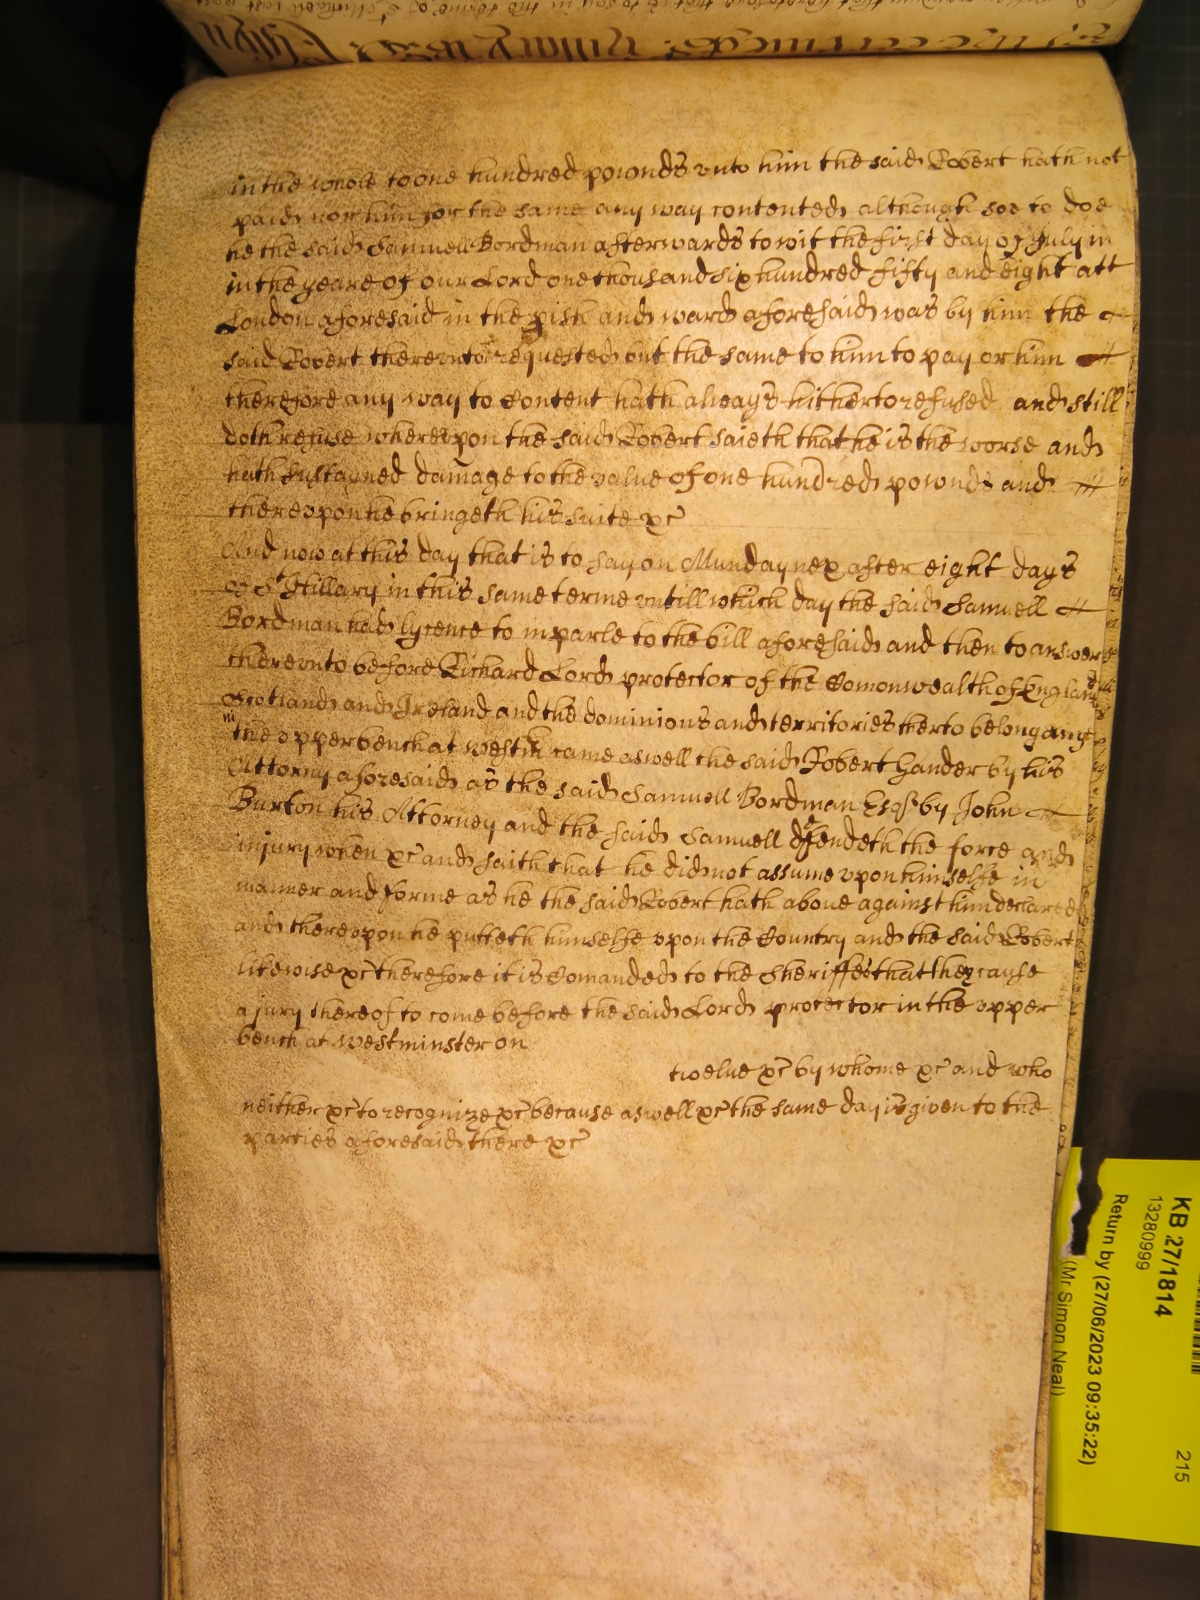 in the whole to one hundred powndes vnto him the said Robert hath not
paid nor him for the same any way contented although soe to doe
he the said Samuell Bordman afterwards to wit the first day of July in
in the yeare of our Lord one thousand six hundred fifty and eight att
London aforesaid in the pish and ward aforesaid was by him the
said Robert therevnto requested but the same to him to pay or him
therefore any way to Content hath always hitherto refused and still
doth refuse wherevpon the said Robert saieth that he is the worse and
hath sustayned damage to the value of one hundred pownds and
therevpon he bringeth his suite &c
And now at this day that is to say on Munday nex after eight days
of St Hillary in this same terme vntill which day the said Samuell
Bordman had lycence to imparle to the bill aforesaid and then to answer
therevnto before Richard Lord protector of the Comonwealth of England
Scotland and Ireland and the dominions and territories therto belonging
in the vpper bench at Westm came aswell the said Robert Gander by his
Attorny aforesaid as the said Samuell Bordman Esqr by John
Burton his Attorney and the said Samuell defendeth the force and
injury when &c and saith that he did not assume vpon himselfe in
manner and forme as he the said Robert hath aboue against him declared
and therevpon he putteth himselfe vpon the Country and the said Robert
likewise &c therefore it is Comanded to the Sheriffes that they cause
a jury thereof to come before the said Lord protector in the vpper
bench at Westminster on
twelue &c by whome &c and who
neither &c to recognize &c because aswell &c the same day is given to the
parties aforesaid there &c
KB 27/1814
215
13280999
Return by (27/06/2023 09:35:22)
(Mr Simon Neal)